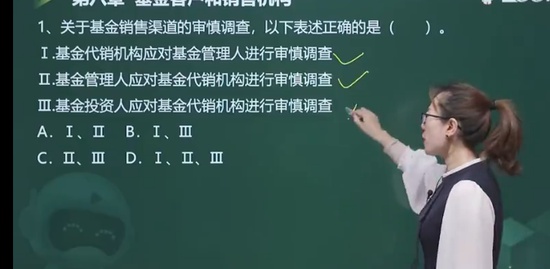 第六章 基金客户和销售机构
1、关于基金销售渠道的审慎调查，以下表述正确的是（ ）。
Ⅰ.基金代销机构应对基金管理人进行审慎调查
Ⅱ.基金管理人应对基金代销机构进行审慎调查
Ⅲ.基金投资人应对基金代销机构进行审慎调查
A. Ⅰ、Ⅱ B. Ⅰ、Ⅲ
C. Ⅱ、Ⅲ D. Ⅰ、Ⅱ、Ⅲ